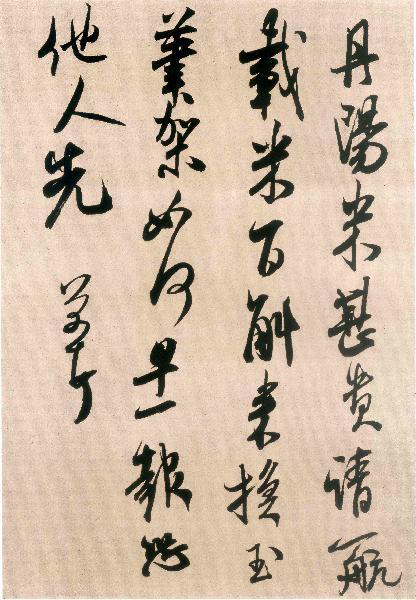 丹陽米甚貴請一航
載米百斛來換玉
筆架如何早一報恐
他人先 芾